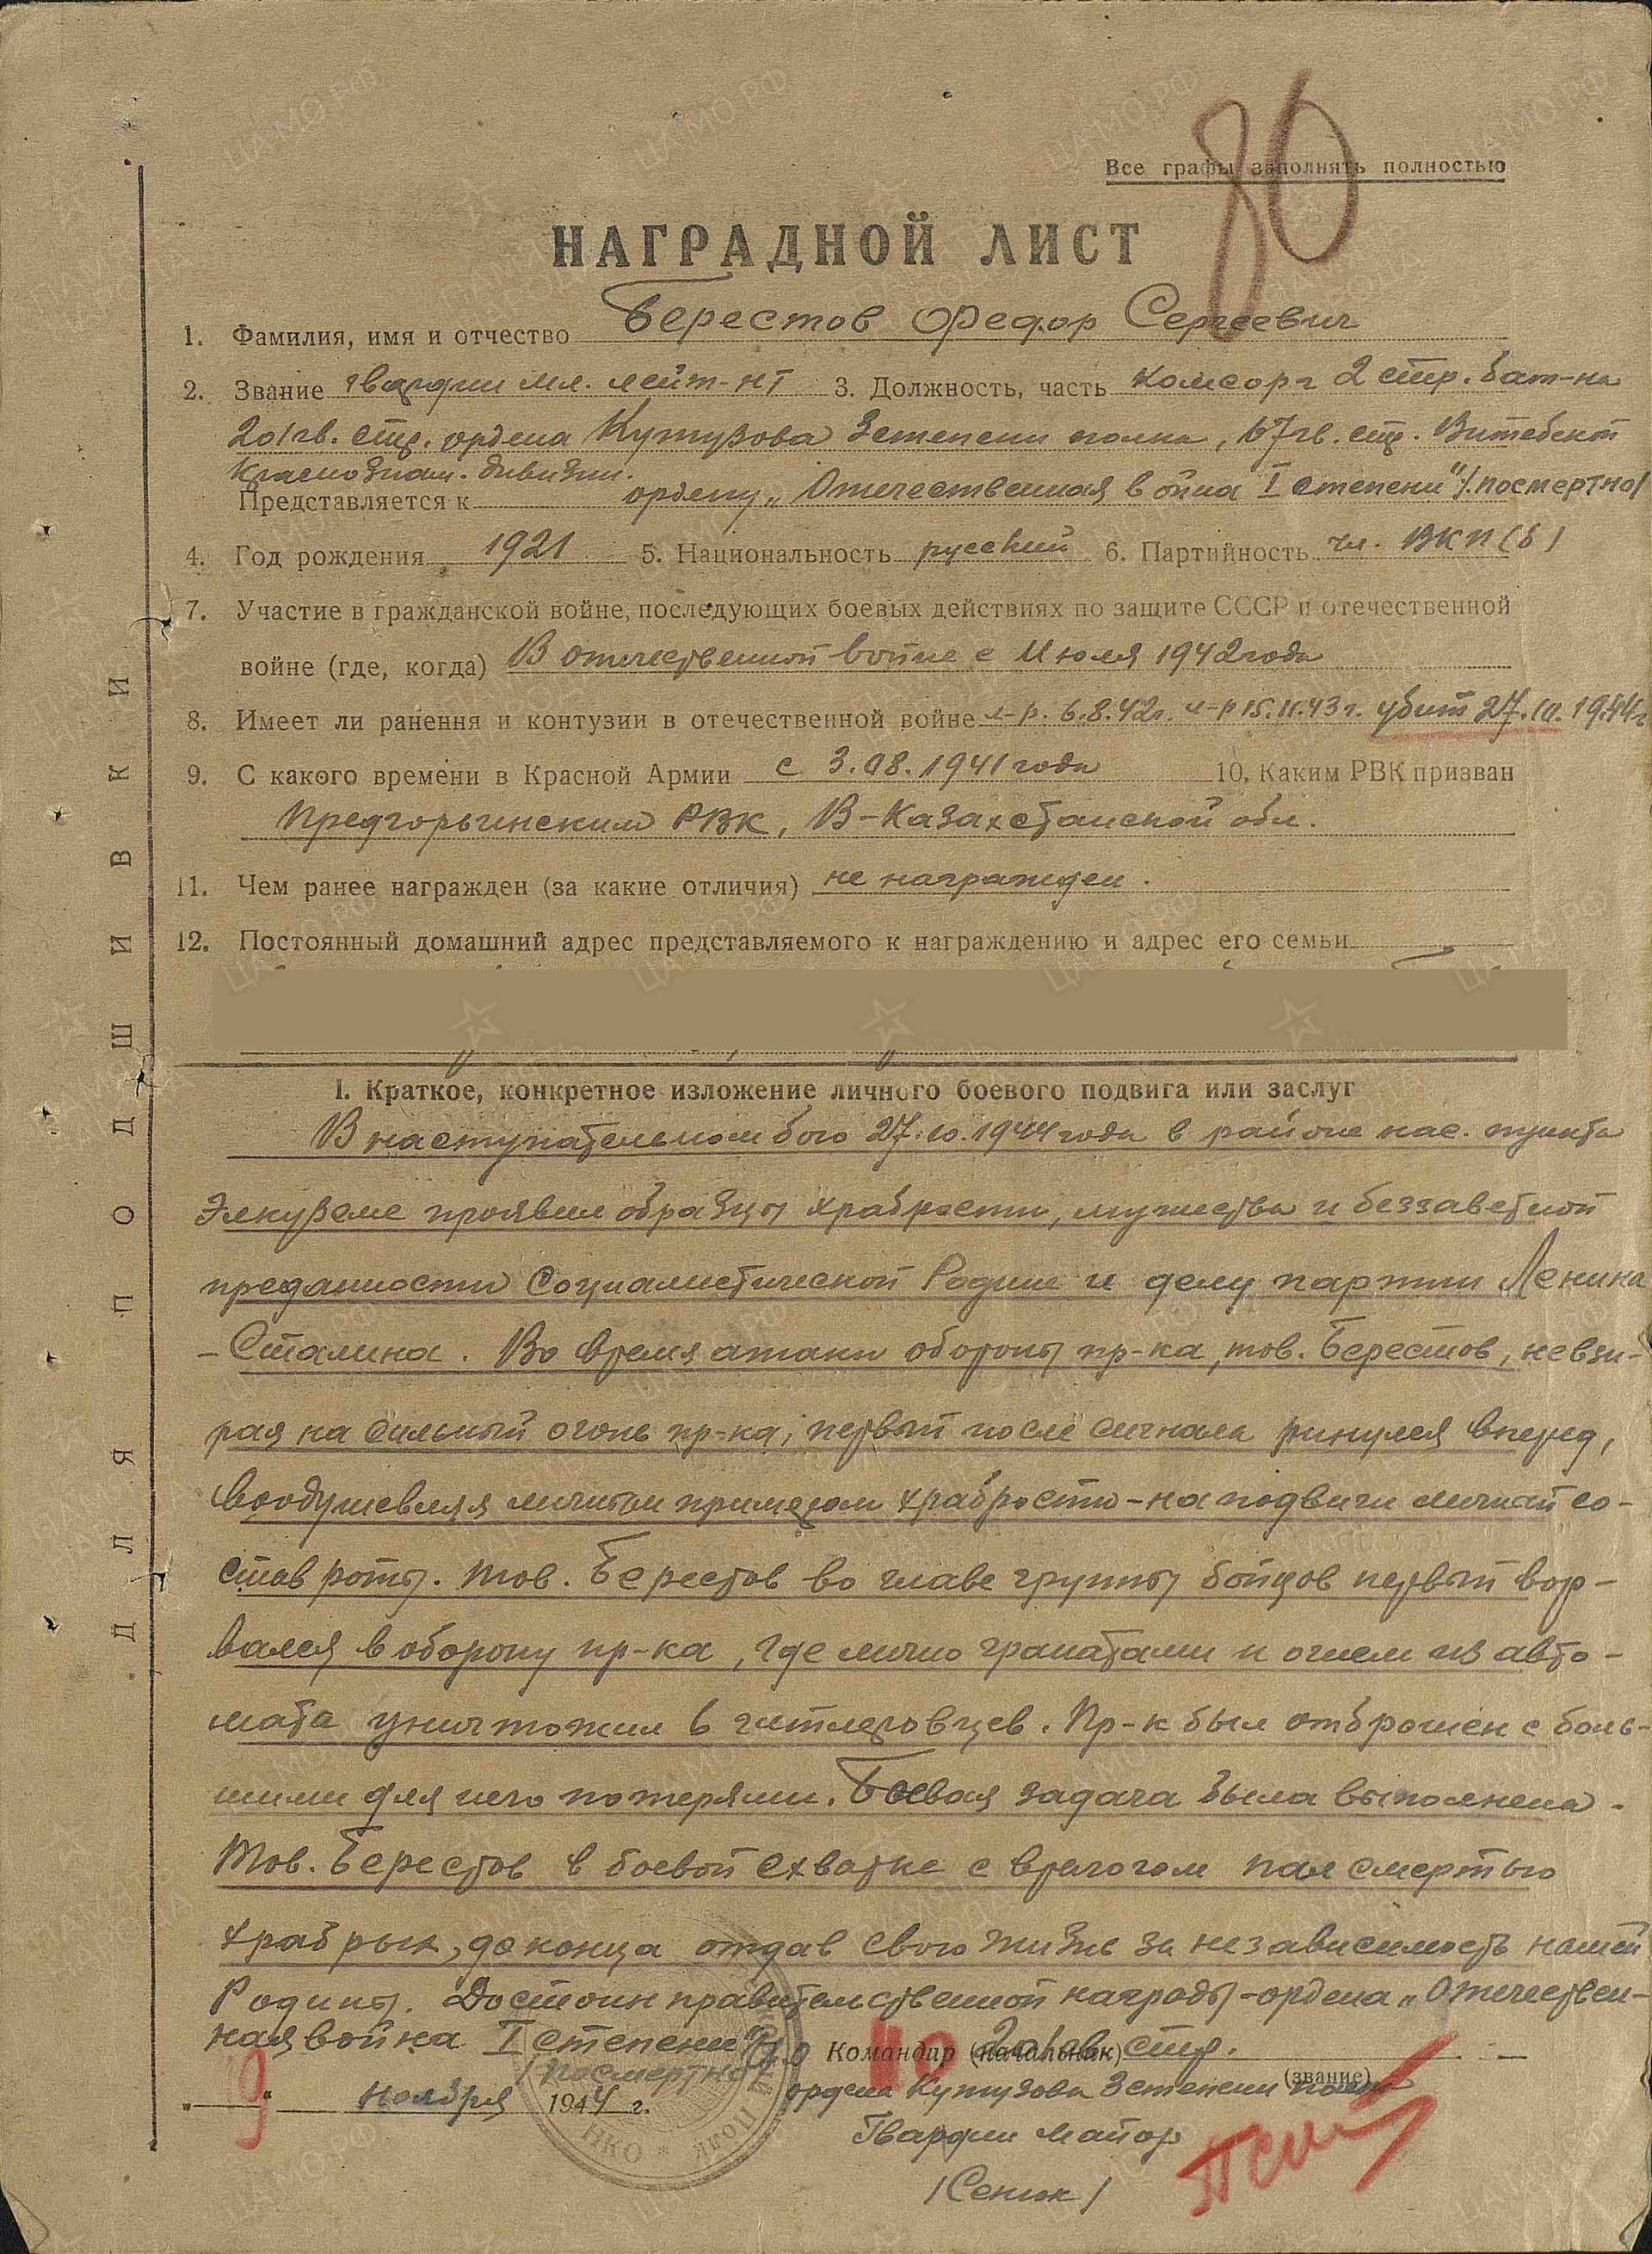 80
Все графы заполнять полностью
НАГРАДНОЙ ЛИСТ
1. Фамилия, имя и отчество Берестов Федор Сергеевич
2. Звание гвардии мл. лейт-нт 3. Должность, часть комсорг 2 стр. бат-на
201 гв. стр. ордена Кутузова 3 степени полка, 67 гв. стр. Витебской
Краснознам. дивизии.
Представляется к ордену „Отечественная война I степени" /посмертно/
4. Год рождения 1921 5. Национальность русский 6. Партийность чл. ВКП(б)
7. Участие в гражданской войне, последующих боевых действиях по защите СССР и отечественной
войне (где, когда) В отечественной войне с июля 1942 года
8. Имеет ли ранения и контузии в отечественной войне л-р. 6.8.42г. л-р 15.11.43г. убит 27.10.1944г
9. С какого времени в Красной Армии с 3.08.1941 года 10. Каким РВК призван
Предгорненским РВК, В-Казахстанской обл.
11. Чем ранее награжден (за какие отличия) не награжден.
12. Постоянный домашний адрес представляемого к награждению и адрес его семьи
I. Краткое, конкретное изложение личного боевого подвига или заслуг
В наступательном бою 27.10.1944 года в районе нас. пункта
Элкуземе проявил образцы храбрости, мужества и беззаветной
преданности Социалистической Родине и делу партии Ленина
- Сталина. Во время атаки обороны пр-ка, тов. Берестов, невзи-
рая на сильный огонь пр-ка, первый после сигнала ринулся вперед,
воодушевляя личным примером храбрости - на подвиги личный со-
став роты. Тов. Берестов во главе группы бойцов первый вор-
вался в оборону пр-ка, где лично гранатами и огнем из авто-
мата уничтожил 6 гитлеровцев. Пр-к был отброшен с боль-
шими для него потерями. Боевая задача была выполнена.
Тов. Берестов в боевой схватке с врагом пал смертью
храбрых, до конца отдав свою жизнь за независимость нашей
Родины. Достоин правительственной награды - ордена „Отечествен-
ная война I степени"
/посмертно/
Командир (начальник) 201 гв. стр.
(звание)
ордена Кутузова 3 степени полка
9 ноября 1944 г.
Гвардии майор
/Сеник/
НКО * Полк
ДЛЯ ПОДШИВКИ
ЦАМО.РФ